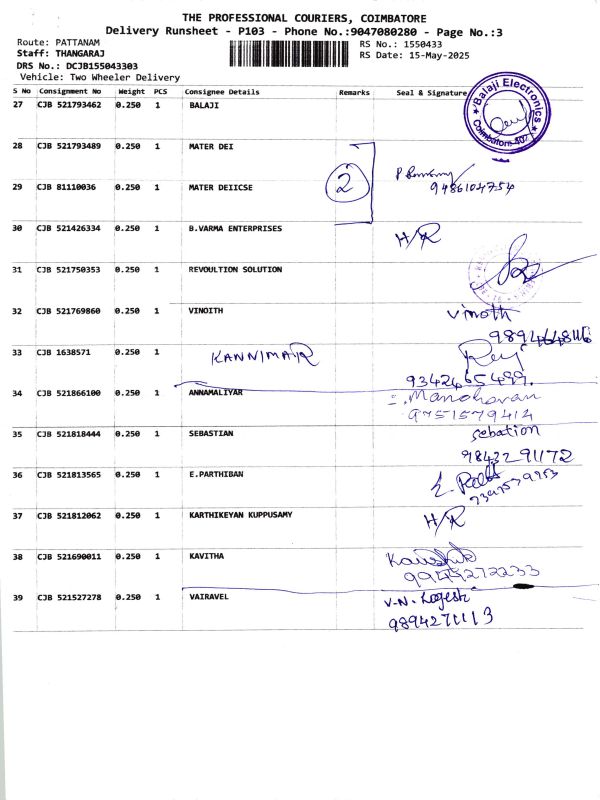 THE PROFESSIONAL COURIERS, COIMBATORE
Delivery Runsheet - P103 - Phone No.:9047080280 - Page No.:3
Route: PATTANAM
RS No.: 1550433
Staff: THANGARAJ
RS Date: 15-May-2025
DRS No.: DCJB155043303
Vehicle: Two Wheeler Delivery
S No Consignment No Weight PCS Consignee Details Remarks Seal & Signature
27 CJB 521793462 0.250 1 BALAJI
Balaji Electronics
Coimbatore
28 CJB 521793489 0.250 1 MATER DEI
29 CJB 81110036 0.250 1 MATER DEIICSE 2
9486104754
30 CJB 521426334 0.250 1 B.VARMA ENTERPRISES H/R
31 CJB 521750353 0.250 1 REVOULTION SOLUTION
32 CJB 521769860 0.250 1 VINOITH vinoth
33 CJB 1638571 0.250 1 KANNIMAYR
9342465499.
34 CJB 521866100 0.250 1 ANNAMALIYAR Manoharan
9751579414
35 CJB 521818444 0.250 1 SEBASTIAN sebation
9843291172
36 CJB 521813565 0.250 1 E.PARTHIBAN
37 CJB 521812062 0.250 1 KARTHIKEYAN KUPPUSAMY H/R
38 CJB 521690011 0.250 1 KAVITHA Kaushik
39 CJB 521527278 0.250 1 VAIRAVEL V.N. Logesh
9894271113